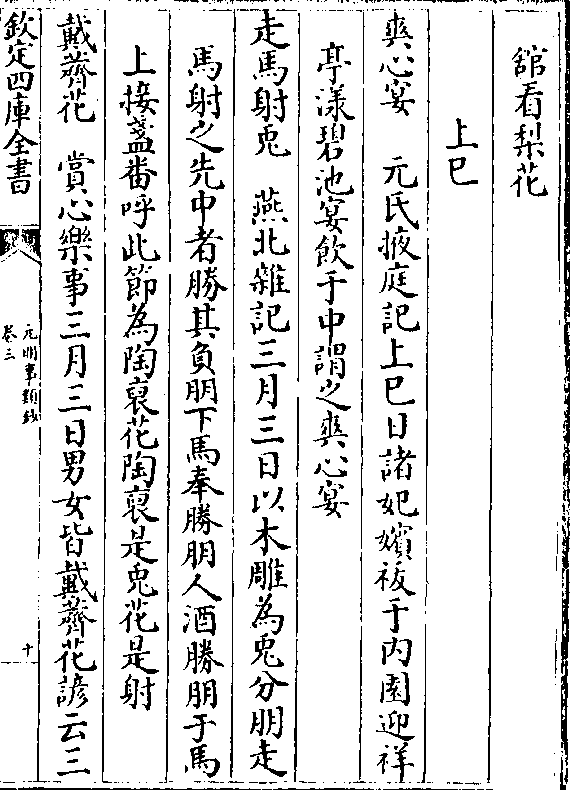 舘看梨花
上巳
爽心宴　元氏掖庭記上巳日諸妃嬪祓于内園迎祥
亭漾碧池宴飲于中謂之爽心宴
走馬射兎　燕北雜記三月三日以木雕為兎分朋走
馬射之先中者勝其負朋下馬奉勝朋人酒勝朋于馬
上接盞畨呼此節為陶裏花陶裏是兎花是射
戴薺花　賞心樂事三月三日男女皆戴薺花諺云三
欽定四庫全書
元明事類鈔
卷三
十